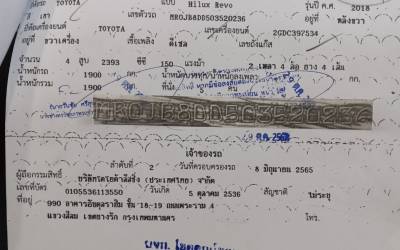 TOYOTA Hilux Revo รุ่นปี ค.ศ. 2018
สี เทา เลขตัวรถ MR0JB8DD503520236 อยู่ที่ หลังขวา
ยี่ห้อเครื่องยนต์ TOYOTA เลขเครื่องยนต์ 2GDC397534
อยู่ที่ ขวาเครื่อง เชื้อเพลิง ดีเซล เลขถังแก๊ส
จำนวน 4 สูบ 2393 ซีซี 150 แรงม้า 2 เพลา 4 ล้อ 4 เส้น
น้ำหนักรถ 1900 กก.
น้ำหนักรวม 1900 กก. ที่นั่ง คน
MR0JB8DD503520236
เจ้าของรถ
ลำดับที่ 2 วันที่ครอบครองรถ 8 มิถุนายน 2565
ผู้ถือกรรมสิทธิ์ บริษัทโตโยต้าลีสซิ่ง (ประเทศไทย) จำกัด
เลขที่บัตร 0105536113550 วันเกิด 5 ตุลาคม 2536 สัญชาติ ไม่ระบุ
ที่อยู่ 990 อาคารอับดุลราฮิม ชั้น 18-19 ถนนพระราม 4
แขวงสีลม เขตบางรัก กรุงเทพมหานคร โทร.